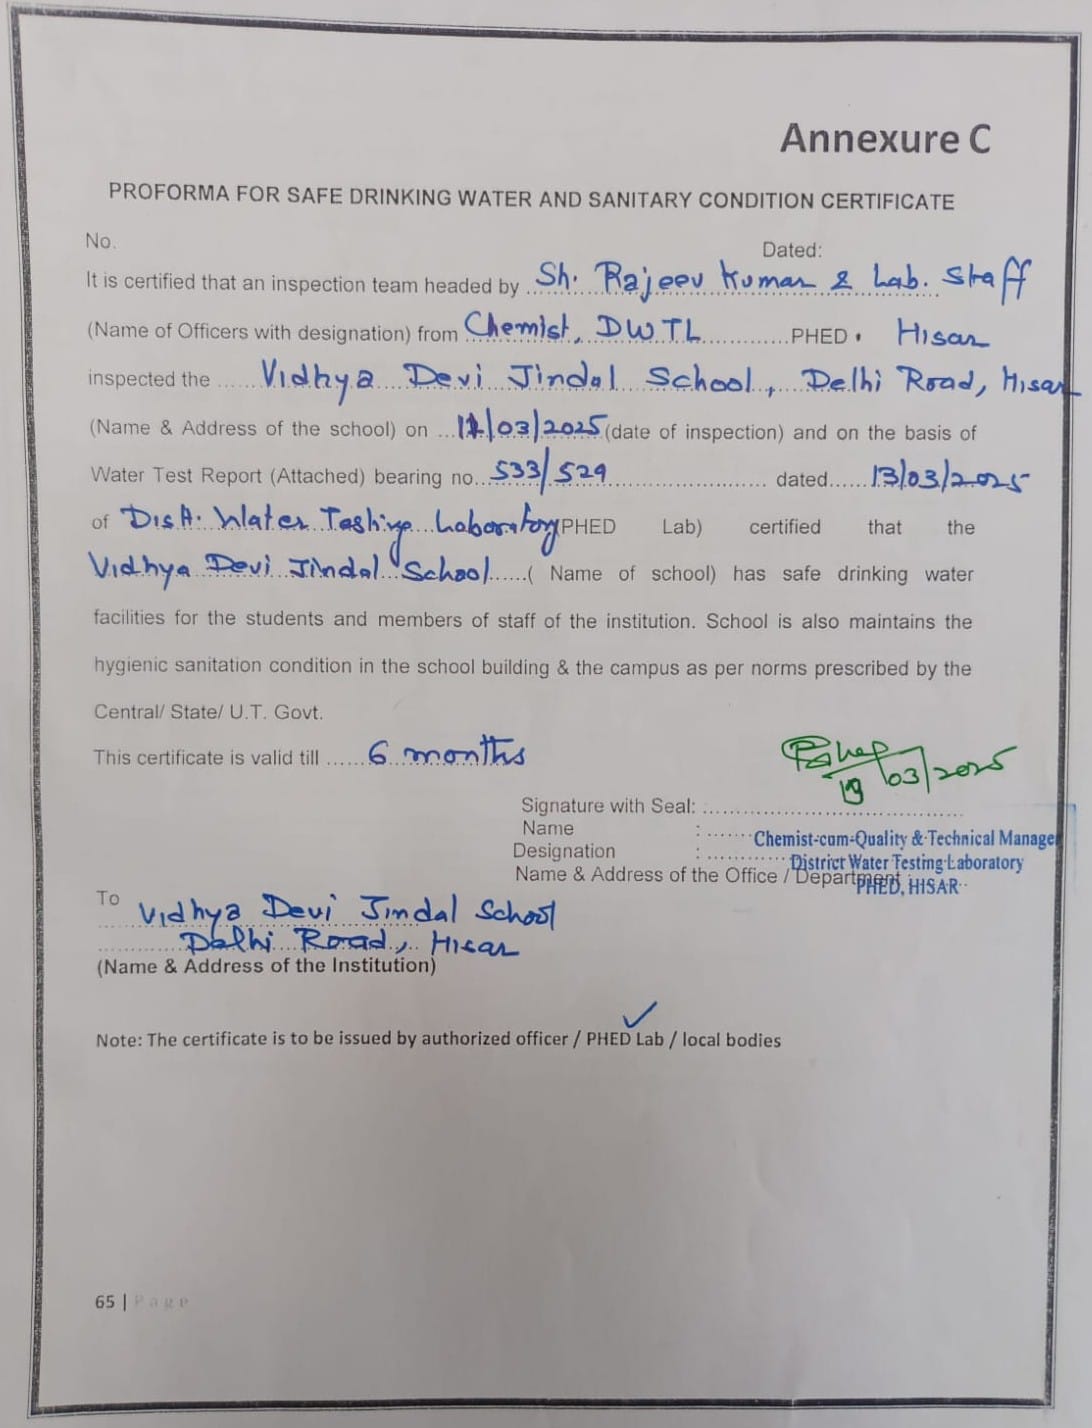 Annexure C
PROFORMA FOR SAFE DRINKING WATER AND SANITARY CONDITION CERTIFICATE
No.
Dated:
It is certified that an inspection team headed by Sh. Rajeev Kumar & Lab. Staff
(Name of Officers with designation) from Chemist, DWTL............PHED. Hisar
inspected the ...... Vidhya Devi Jindal School, Delhi Road, Hisar
(Name & Address of the school) on ...11/03/2025 (date of inspection) and on the basis of
Water Test Report (Attached) bearing no...533/529........................ dated......13/03/2025
of Distt. Water Testing Laboratory PHED Lab) certified that the
Vidhya Devi Jindal School......( Name of school) has safe drinking water
facilities for the students and members of staff of the institution. School is also maintains the
hygienic sanitation condition in the school building & the campus as per norms prescribed by the
Central/ State/ U.T. Govt.
This certificate is valid till ......6 months
19/03/2025
Signature with Seal: ........................................
Name : ........
Chemist-cum-Quality & Technical Manage
Designation : ............
District Water Testing Laboratory
Name & Address of the Office / Department
PHED, HISAR
To
Vidhya Devi Jindal School
Delhi Road, Hisar
(Name & Address of the Institution)
Note: The certificate is to be issued by authorized officer / PHED Lab / local bodies
65 | Page